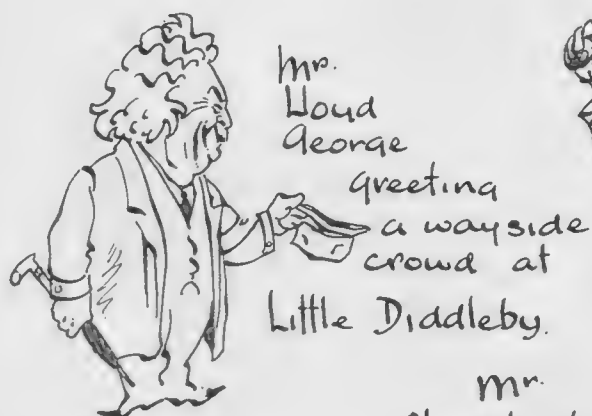 Mr.
Lloyd
George
greeting
a wayside
crowd at
Little Diddleby.
Mr.